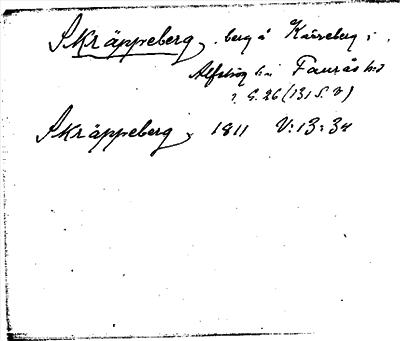 Skräppeberg, berg å Kåseberg i
Alfshög Faurås hd
G. 26 (131 S. V)
Skräppeberg, 1811 V:13:34